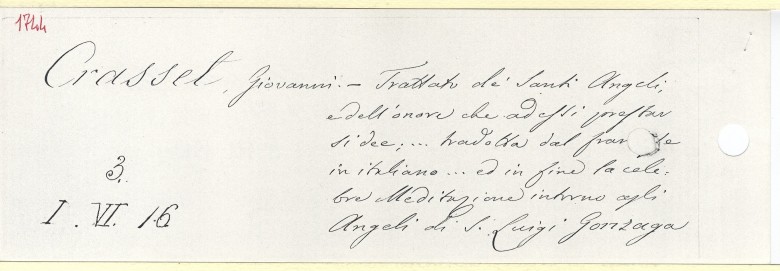 1744
Crasset, Giovanni. — Trattato de' Santi Angeli,
e dell'onore che ad essi prestar
si dee; ... tradotta dal fran   se
in italiano ... ed in fine la cele-
bre Meditazione intorno agli
Angeli di S. Luigi Gonzaga
3.
I. VI. 16